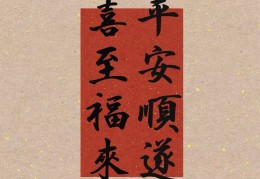 平安順遂
喜至福來